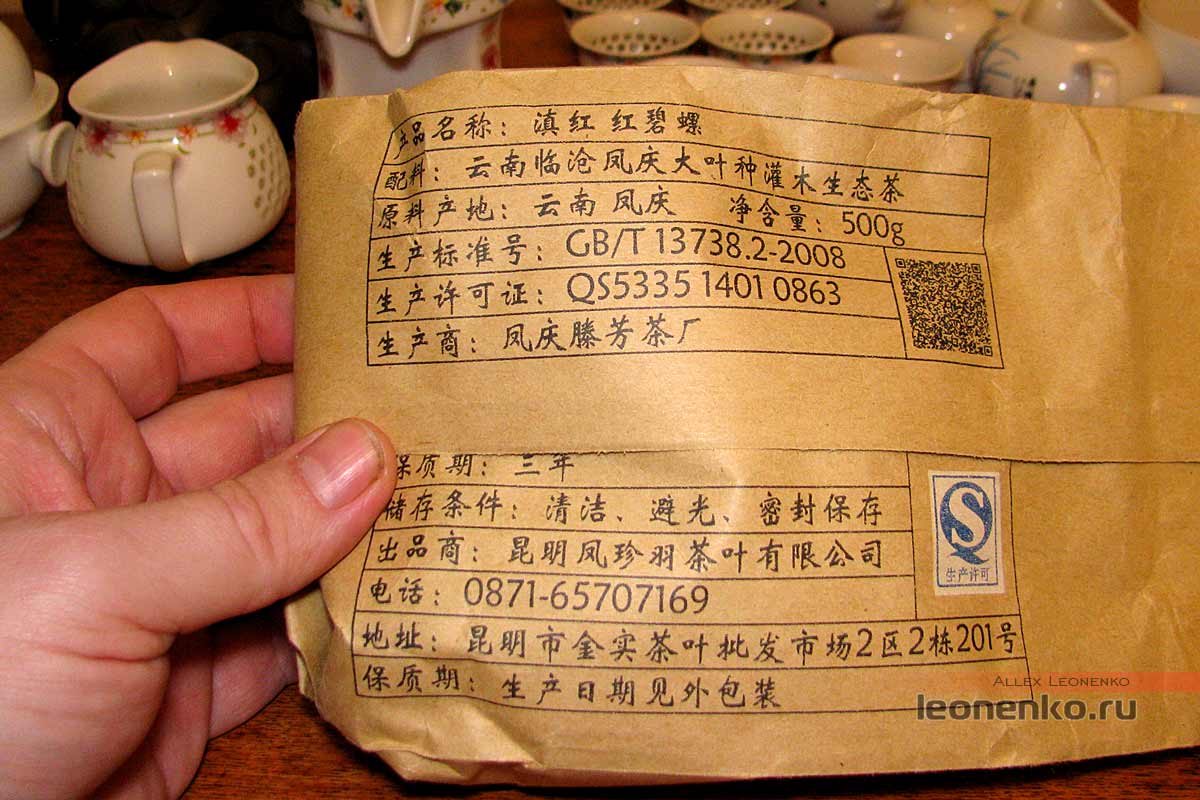 产品名称：滇红 红碧螺
配料：云南临沧凤庆大叶种灌木生态茶
原料产地：云南 凤庆 净含量：500g
生产标准号：GB/T 13738.2-2008
生产许可证：QS5335 1401 0863
生产商：凤庆滕芳茶厂
保质期：三年
储存条件：清洁、避光、密封保存
出品商：昆明凤珍羽茶叶有限公司
电话：0871-65707169
地址：昆明市金实茶叶批发市场2区2栋201号
保质期：生产日期见外包装
QS
生产许可
ALLEX LEONENKO
leonenko.ru